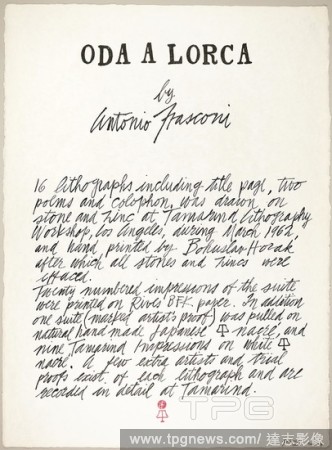 ODA A LORCA
by
Antonio Frasconi
16 lithographs including title page, two
poems and colophon, was drawn on
stone and zinc at Tamarind Lithography
Workshop, Los Angeles, during March 1962,
and hand printed by Bohuslav Horak,
after which all stones and zincs were
effaced.
Twenty numbered impressions of the suite
were printed on Rives BFK paper. In addition
one suite (marked artist's proof) was pulled on
natural hand made Japanese nacre, and
nine Tamarind Impressions on white
nacre. A few extra artists and trial
proofs exist of each lithograph and are
recorded in detail at Tamarind.
TPG
www.tpgnews.com/達志影像